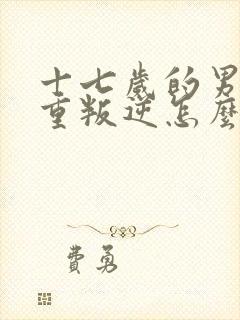 十七歲的男
重叛逆怎麼
費勇